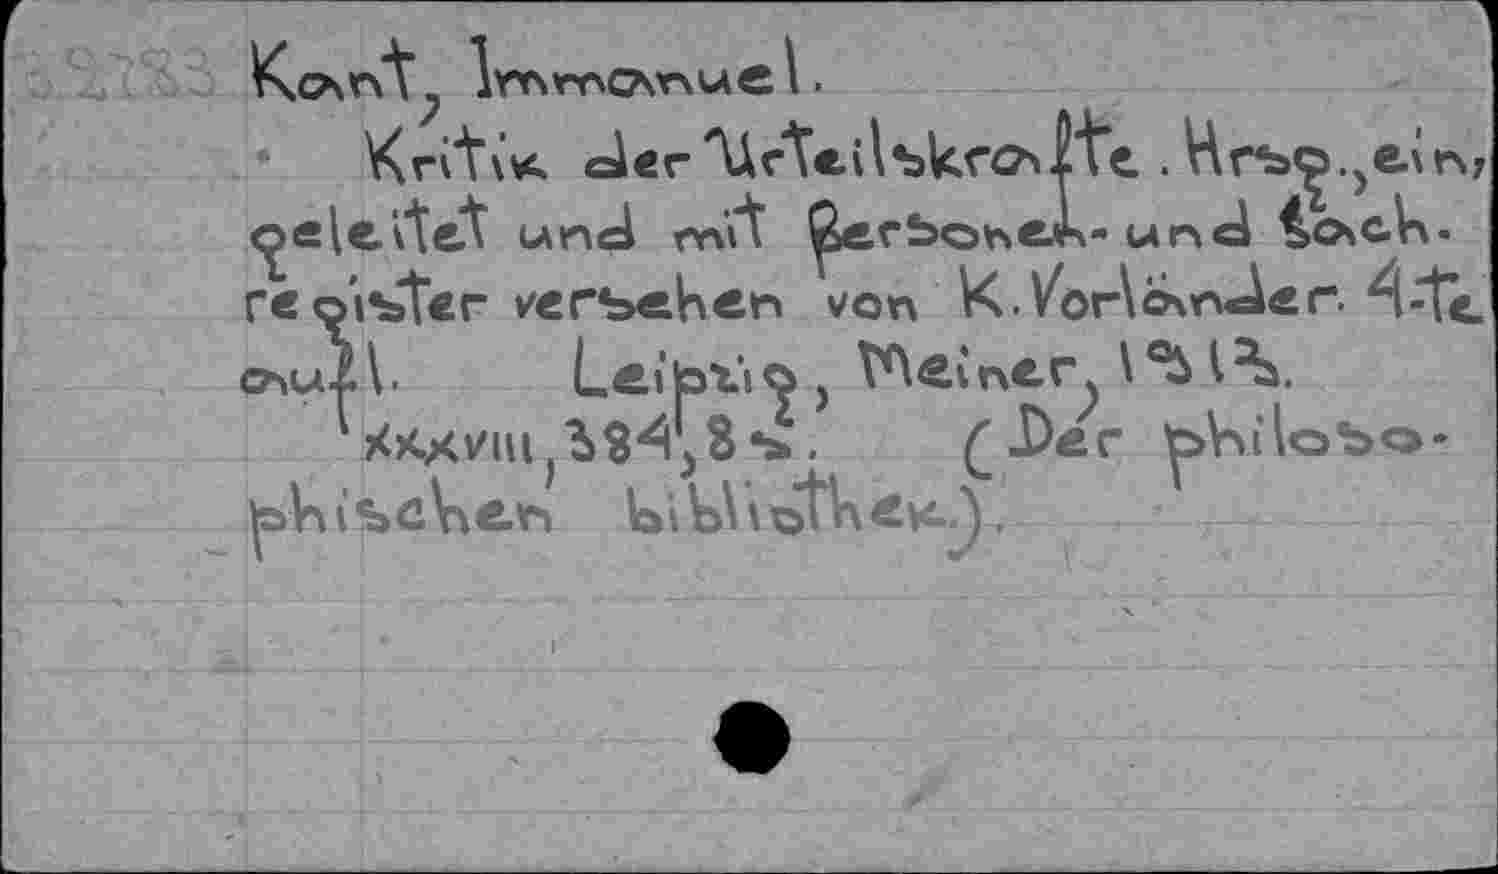 Kant, Immanuel.
Kritik der Urteilskrafte. Hrsg., ein,
geleitet und mit Personen- und Sach-
register versehen von K. Vorländer. 4-te
aufl. Leipzig, Meiner,
XXXVIII, 384, 8 s. (Der philoso-
phischen bibliothek.).